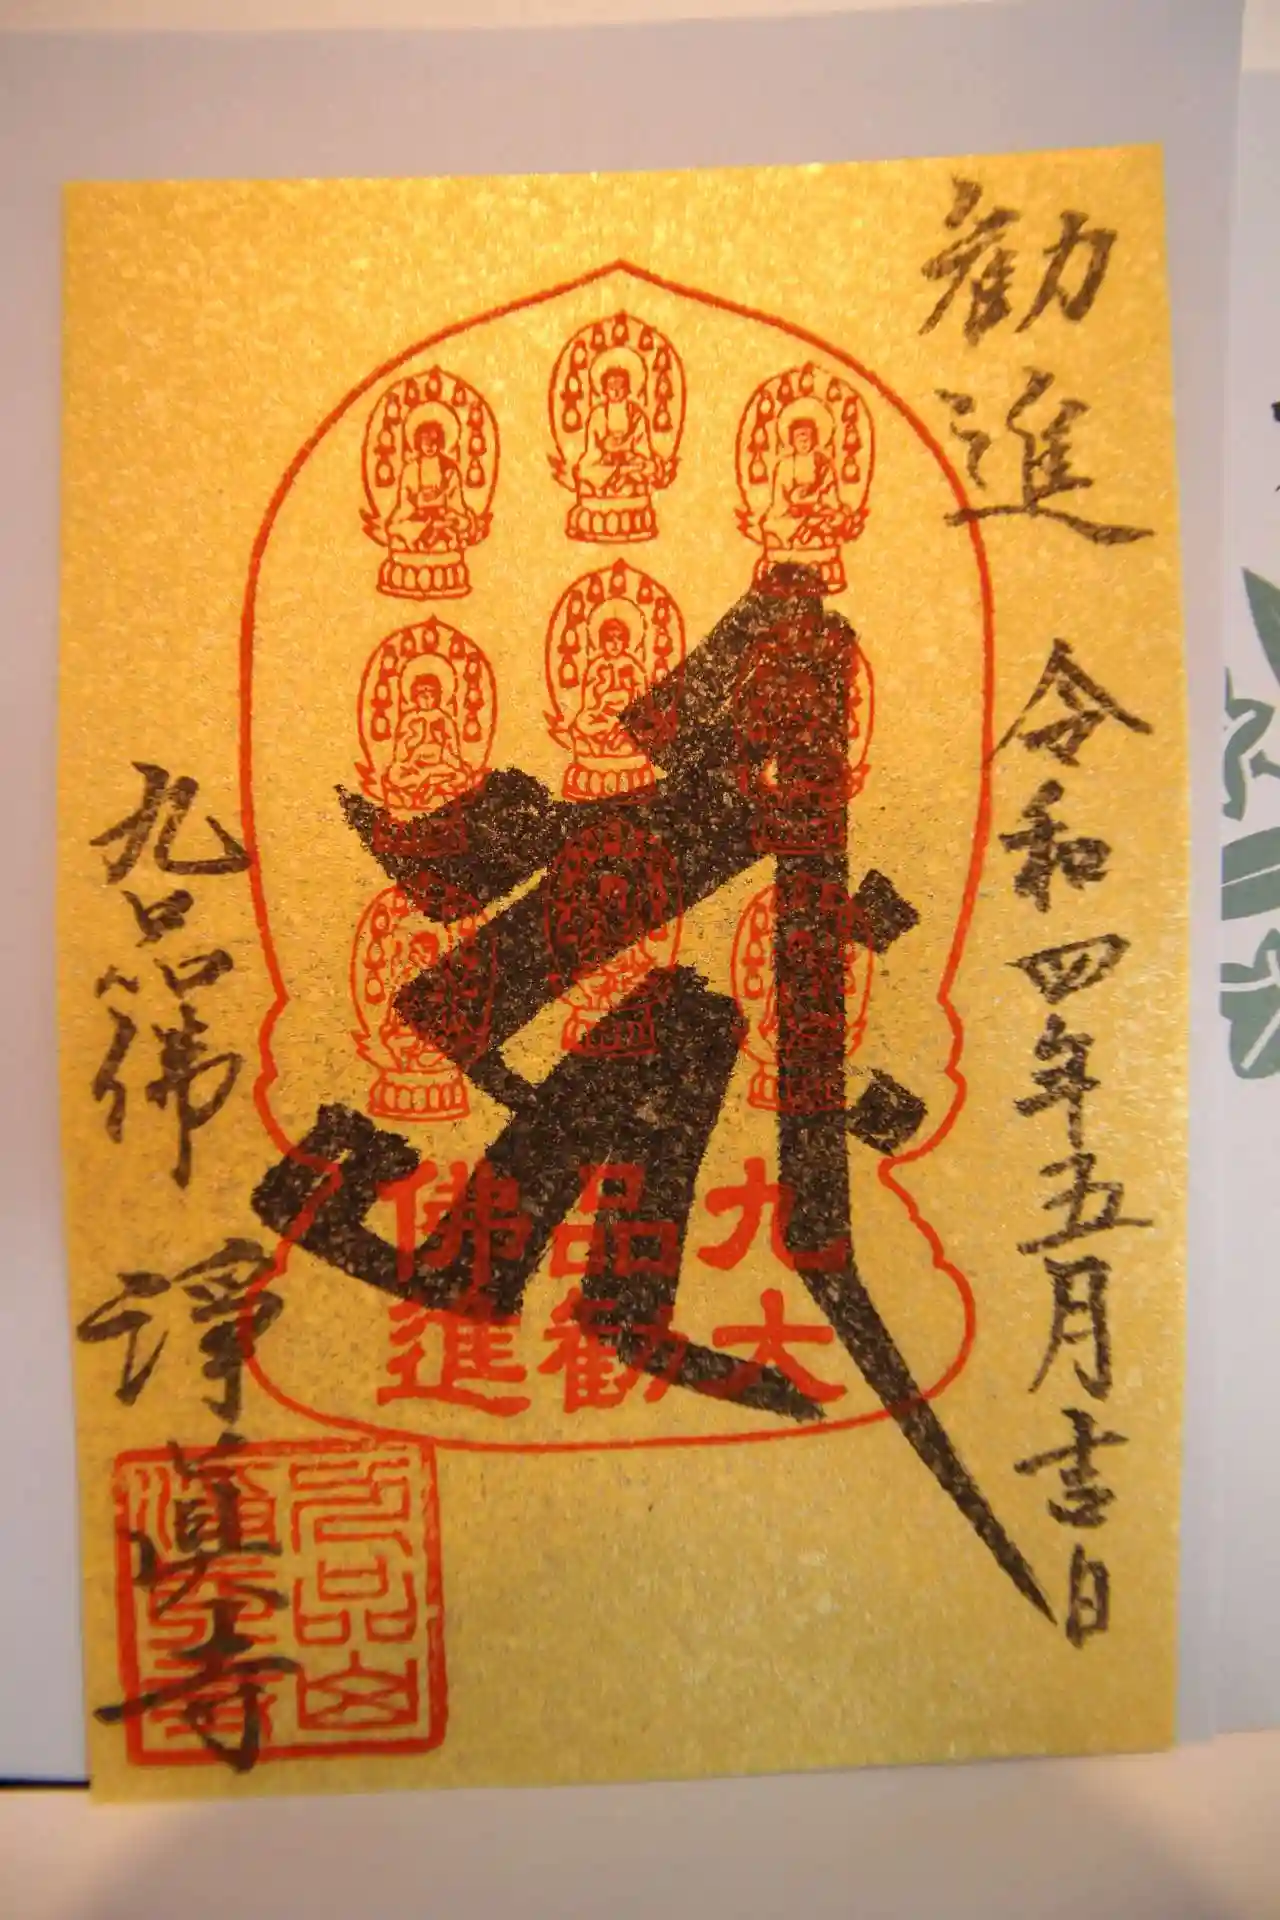 勧進
令和四年五月吉日
𑖮𑖿𑖨𑖱𑖾
九品佛
大勧進
九品佛
淨真寺
九品山
淨真寺